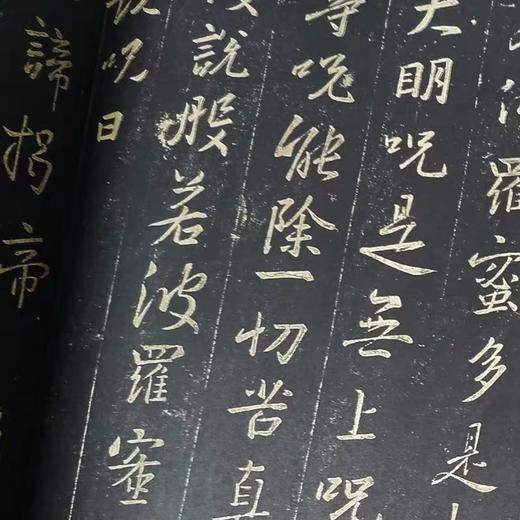 羅蜜多是
大明呪是無上呪
等呪能除一切苦真
說般若波羅蜜
說呪曰
諦揭帝